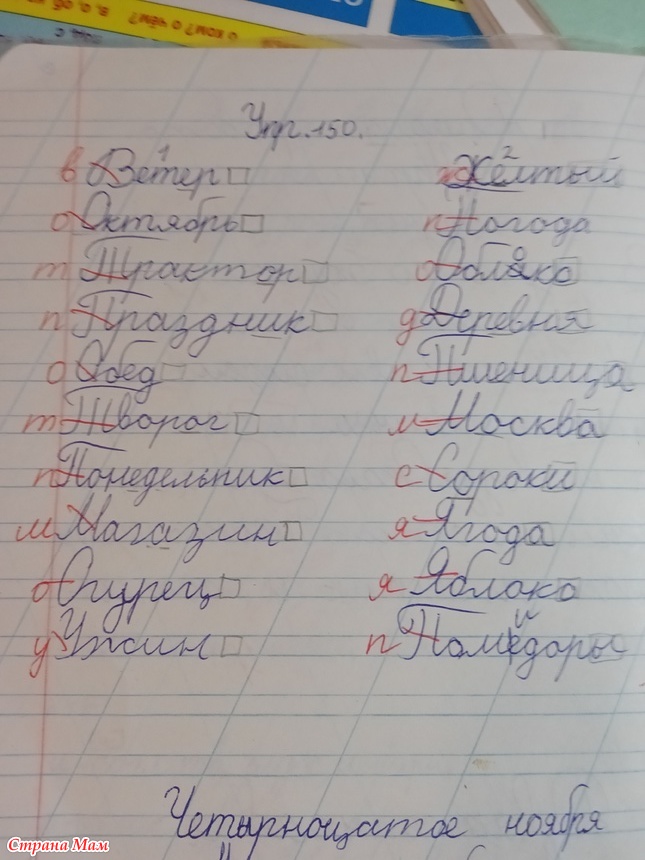 о ком? о чём?
Упр. 150.
1 2
в Ветер ж Жёлтый
о Октябрь п Погода
т Трактор о Облако
п Праздник д Деревня
о Обед п Пшеница
т Творог м Москва
п Понедельник с Сороки
м Магазин я Ягода
о Огурец я Яблоко
у Ужин п Помидоры
Четырнощатое ноября
Страна Мам